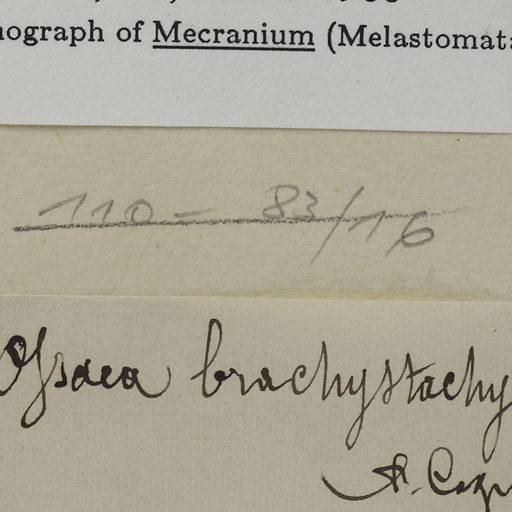 nograph of Mecranium (Melastomata
110 - 83/16
Ossaea brachystachy
A. Cogn